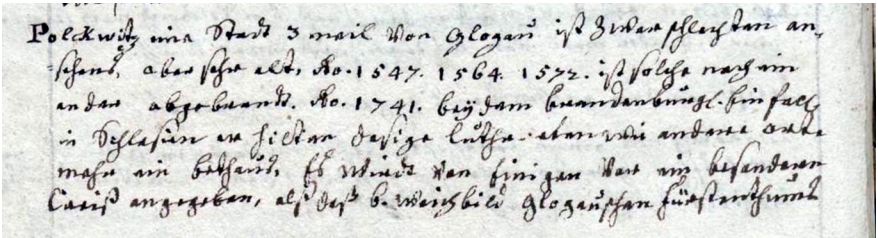 Polckwitz eine Stadt 3 meil von Glogau ist zwar schlechten an-
sehens, aber sehr alt. Ao. 1547. 1564. 1572. ist solche nach ein
ander abgebrandt. Ao. 1741. bey dem brandenburgl. Einfall
in Schlesien er hielten dasige Luthe- eben wie andere orte
mehr ein bethauß. Es wirdt von Einigen vor ein besondern
Creiß angegeben, alß daß 6. Weichbild Glogauschen Fürstenthumbs